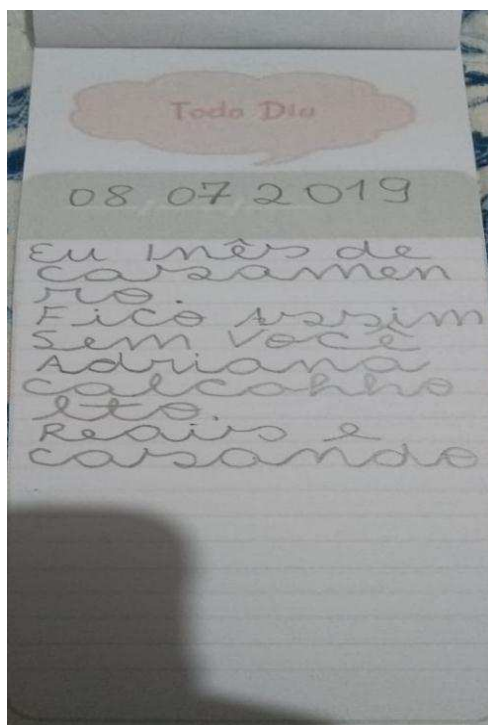 Todo Dia
08,07,2019
Eu Inês de
casamen
ro.
Fico Assim
Sem Você
Adriana
Calcanho
lto.
Reais e
casando